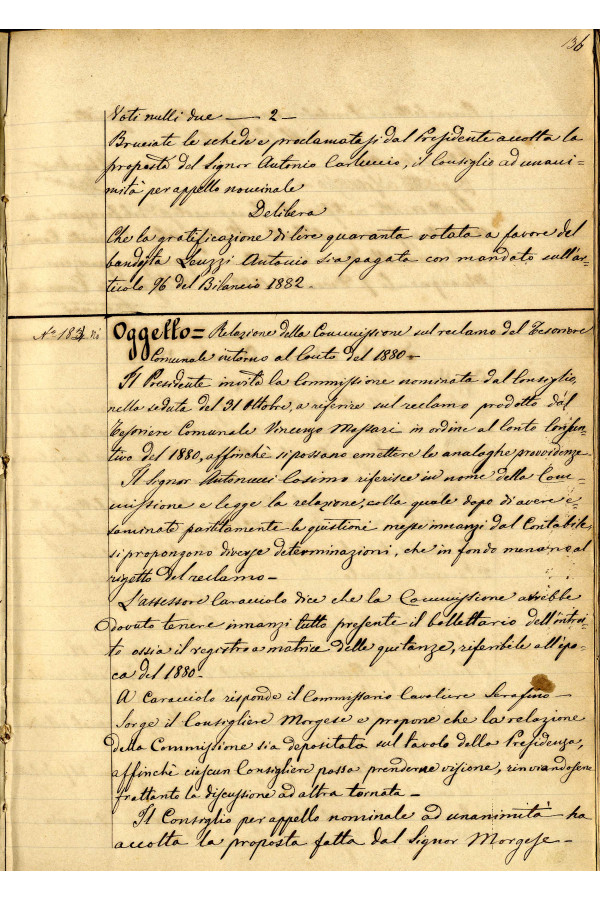 136
Voti nulli due — 2 —
Bruciate le schede e proclamatasi dal Presidente accolta la
proposta del Signor Antonio Carluccio, il Consiglio ad unani-
mità per appello nominale
Delibera
Che la gratificazione di lire quaranta votata a favore del
bandista Leuzzi Antonio sia pagata con mandato sull'ar-
ticolo 96 del Bilancio 1882.
Nº 183
Oggetto = Relazione della Commissione sul reclamo del Tesoriere
Comunale intorno al Conto del 1880 —
Il Presidente invita la Commissione nominata dal Consiglio,
nella seduta del 31 Ottobre, a riferire sul reclamo prodotto dal
Tesoriere Comunale Vincenzo Massari in ordine al Conto Consun-
tivo del 1880, affinchè si possano emettere le analoghe provvidenze
Il Signor Antonucci Cosimo riferisce in nome della Com-
missione e legge la relazione, colla quale dopo di avere e-
saminat partitamente le quistioni messe innanzi dal Contabile,
si propongono diverse determinazioni, che in fondo menano al
rigetto del reclamo —
L'assessore Caracciolo dice che la Commissione avrebbe
dovuto tenere innanzi tutto presente il bollettario dell'introi-
to ossia il registro a matrice delle quitanze, riferibile all'epo-
ca del 1880 —
A Caracciolo risponde il Commissario Cavaliere Serafino —
Sorge il Consigliere Morgese e propone che la relazione
della Commissione sia depositata sul tavolo della Presidenza,
affinchè ciascun Consigliere possa prenderne visione, rinviandosene
frattanto la discussione ad altra tornata —
Il Consiglio per appello nominale ad unanimità ha
accolta la proposta fatta dal Signor Morgese —